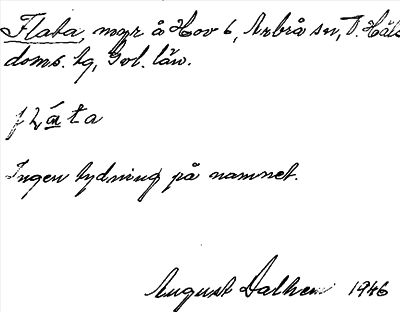 Flata, mgr å Hov 6, Arbrå sn, V. Häls
doms. hg, Gvl. län.
flata
Ingen tydning på namnet.
August Dalhem 1946